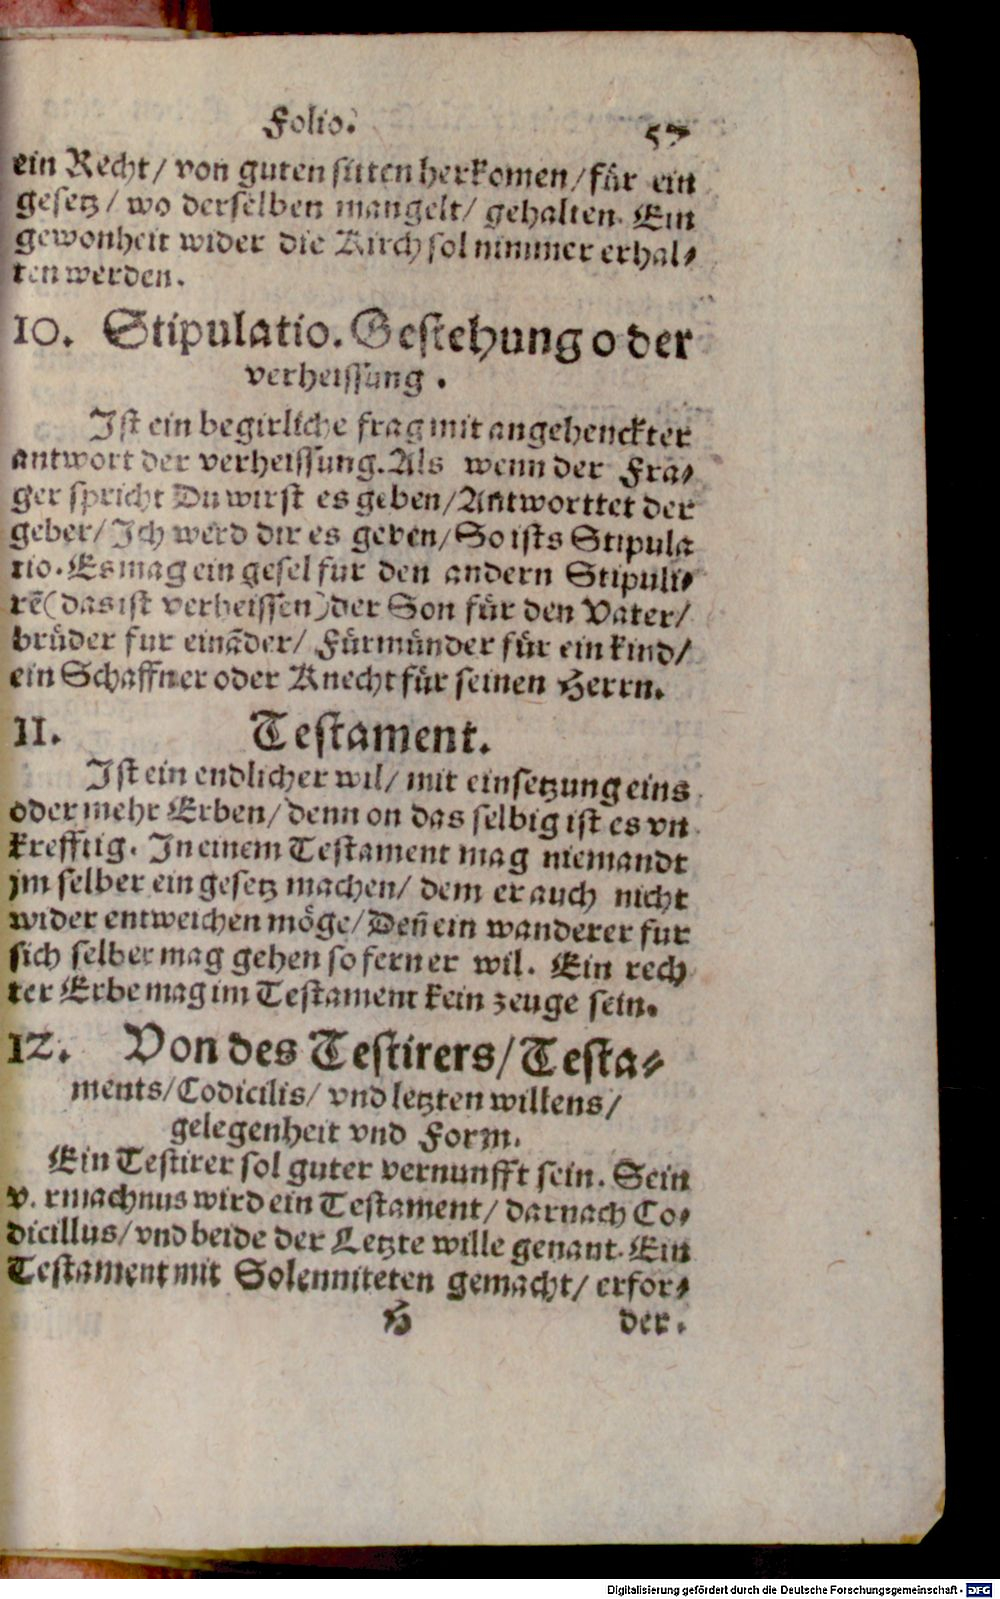 Folio. 57
ein Recht/ von guten sitten herkomen/ für ein
gesetz/ wo derselben mangelt/ gehalten. Ein
gewonheit wider die Kirch sol nimmer erhal⸗
ten werden.
10. Stipulatio. Gestehung oder
verheissung.
Ist ein begirliche frag mit angehenckter
antwort der verheissung. Als wenn der Fra⸗
ger spricht Du wirst es geben/ Antworttet der
geber/ Ich werd dir es geben/ So ists Stipula
tio. Es mag ein gesel fur den andern Stipuli⸗
rē (das ist verheissen) der Son für den Vater/
brüder fur eināder/ Fürmünder für ein kind/
ein Schaffner oder Knecht für seinen Herrn.
11. Testament.
Ist ein endlicher wil/ mit einsetzung eins
oder mehr Erben/ denn on das selbig ist es vn
krefftig. In einem Testament mag niemandt
jm selber ein gesetz machen/ dem er auch nicht
wider entweichen möge/ Deñ ein wanderer fur
sich selber mag gehen so fern er wil. Ein rech
ter Erbe mag im Testament kein zeuge sein.
12. Von des Testirers/ Testa⸗
ments/ Codicilis/ vnd letzten willens/
gelegenheit vnd Form.
Ein Testirer sol guter vernunfft sein. Sein
v. rmachnus wird ein Testament/ darnach Co⸗
dicillus/ vnd beide der Letzte wille genant. Ein
Testament mit Solenniteten gemacht/ erfor⸗
H der.
Digitalisierung gefördert durch die Deutsche Forschungsgemeinschaft - DFG